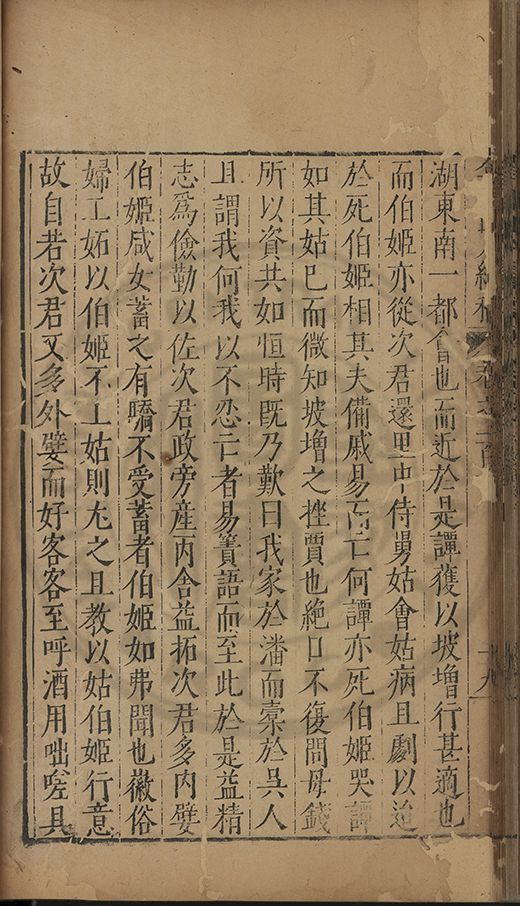 湖東南一都會也而近於是譚蒦以坡增行甚適也
而伯姬亦從次君還里中侍舅姑會姑病且劇以迨
於死伯姬相其夫備戚易而亡何譚亦死伯姬哭譚
如其姑已而微知坡增之挫賈也絶口不復問母錢
所以資共如恒時既乃歎曰我家於潘而橐於吳人
且謂我何我以不忍亡者易簀語而至此於是益精
志為儉勤以佐次君政旁產丙舍益拓次君多內嬖
伯姬咸女蓄之有驕不受蓄者伯姬如弗聞也徽俗
婦工妬以伯姬不工姑則尤之且教以姑伯姬行意
故自若次君又多外嬖而好客客至呼酒用咄嗟具
續稿 卷之
十九